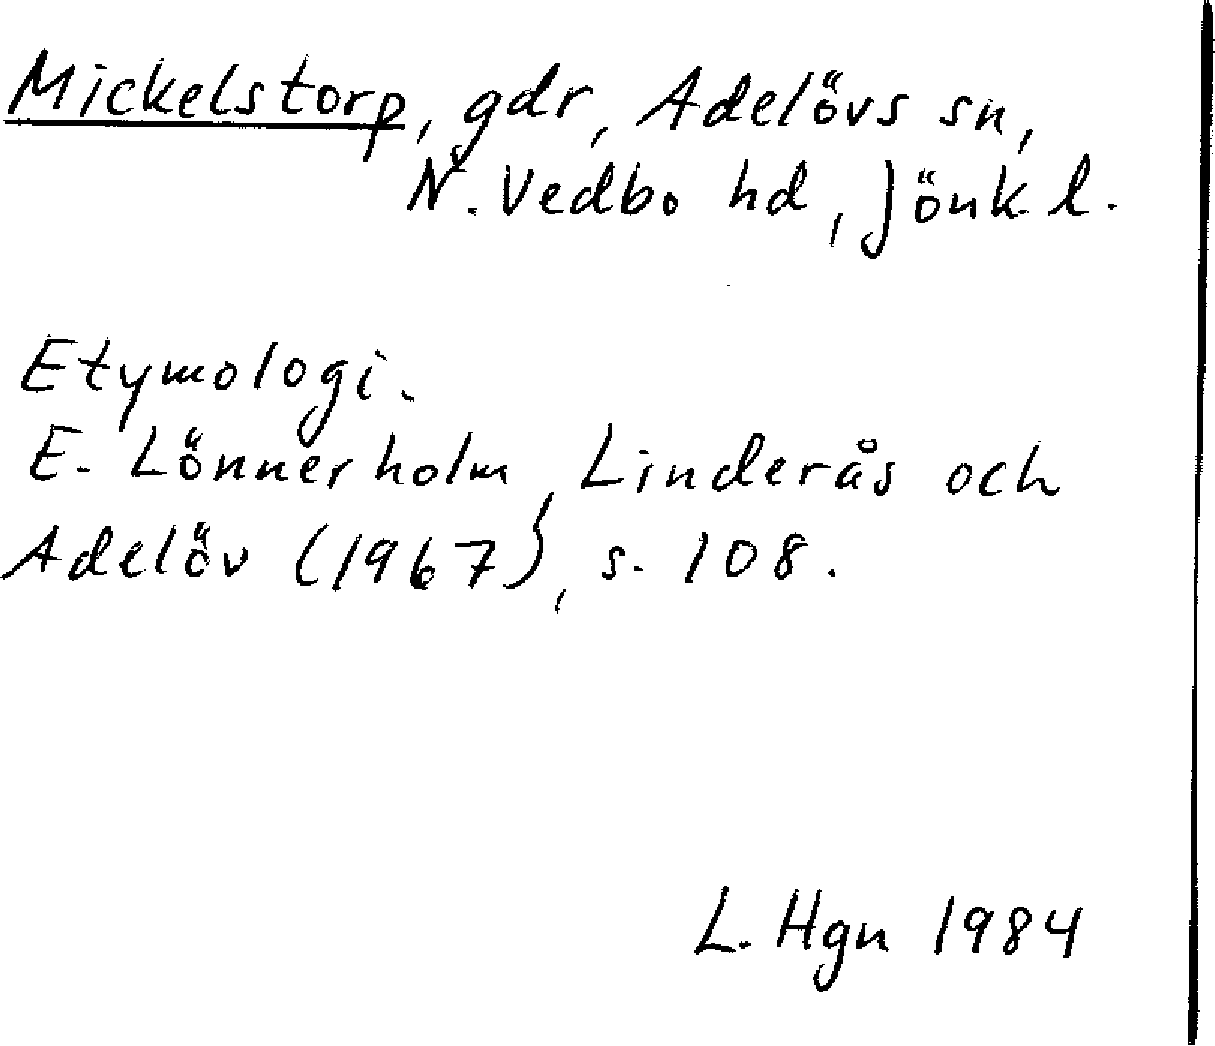 Mickelstorp, gdr, Adelövs sn,
N. Vedbo hd, Jönk l.
Etymologi.
E. Lönnerholm, Linderås och
Adelöv (1967), s. 108.
L. Hgn 1984